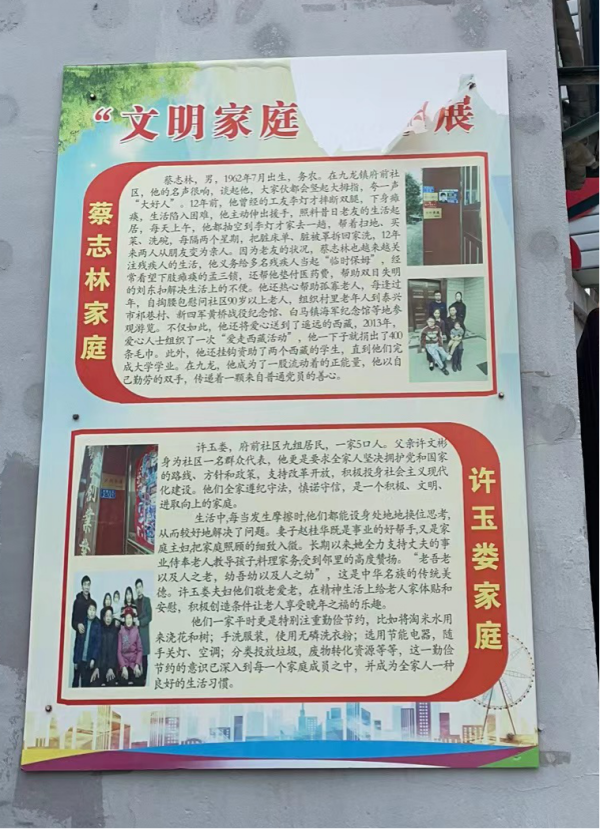 “文明家庭
展
蔡志林家庭
蔡志林，男，1962年7月出生，务农。在九龙镇府前社
区，他的名声很响，谈起他，大家伙都会竖起大拇指，夸一声
“大好人”。12年前，他曾经的工友李灯才摔断双腿，下身瘫
痪，生活陷入困难，他主动伸出援手，照料昔日老友的生活起
居，每天上午，他都抽空到李灯才家去一趟，帮着扫地、买
菜、洗碗，每隔两个星期，把脏床单、脏被罩拆回家洗，12年
来两人从朋友变为亲人。因为老友的状况，蔡志林也越来越关
注残疾人的生活，他义务给多名残疾人当起“临时保姆”，经
常看望下肢瘫痪的孟三锁，还帮他垫付医药费，帮助双目失明
的刘东扣解决生活上的不便。他还热心帮助孤寡老人，每逢过
年，自掏腰包慰问社区90岁以上老人，组织村里老年人到泰兴
市祁巷村、新四军黄桥战役纪念馆、白马镇海军纪念馆等地参
观游览。不仅如此，他还将爱心送到了遥远的西藏，2013年，
爱心人士组织了一次“爱走西藏活动”，他一下子就捐出了400
条毛巾。此外，他还挂钩资助了两个西藏的学生，直到他们完
成大学学业。在九龙，他成为了一股流动着的正能量，他以自
己勤劳的双手，传递着一颗来自普通党员的善心。
许玉娄家庭
许玉娄，府前社区九组居民，一家5口人。父亲许文彬
身为社区一名群众代表，他更是要求全家人坚决拥护党和国家
的路线、方针和政策，支持改革开放，积极投身社会主义现代
化建设。他们全家遵纪守法，慎诺守信，是一个积极、文明、
进取向上的家庭。
生活中，每当发生摩擦时，他们都能设身处地地换位思考，
从而较好地解决了问题。妻子赵桂华既是事业的好帮手，又是家
庭主妇，把家庭照顾的细致入微。长期以来她全力支持丈夫的事
业，侍奉老人教导孩子，料理家务，受到邻里的高度赞扬。“老吾老
以及人之老，幼吾幼以及人之幼”，这是中华名族的传统美
德。许玉娄夫妇他们敬老爱老，在精神生活上给老人家体贴和
安慰，积极创造条件让老人享受晚年之福的乐趣。
他们一家平时更是特别注重勤俭节约，比如将淘米水用
来浇花和树；手洗服装，使用无磷洗衣粉；选用节能电器，随
手关灯、空调；分类投放垃圾，废物转化资源等等，这一勤俭
节约的意识已深入到每一个家庭成员之中，并成为全家人一种
良好的生活习惯。